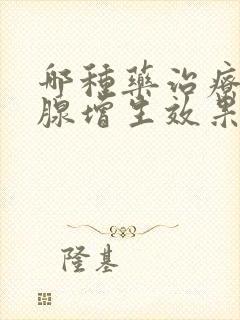 哪種藥治療
腺增生效果
隆基